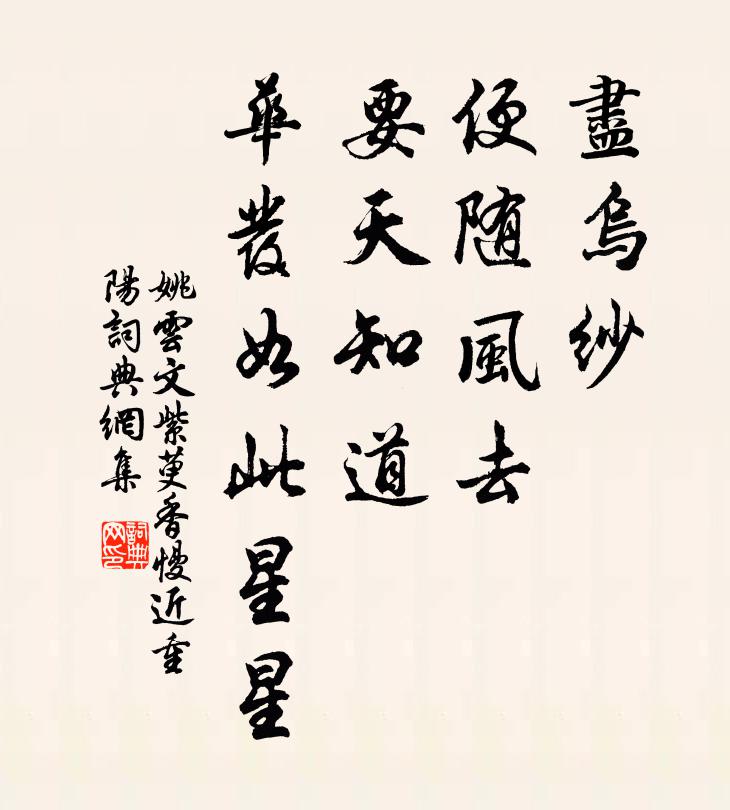 盡烏紗
便随風去
要天知道
華發如此星星
姚雲文紫萸香慢近重
陽詞典網集
詞典
网印